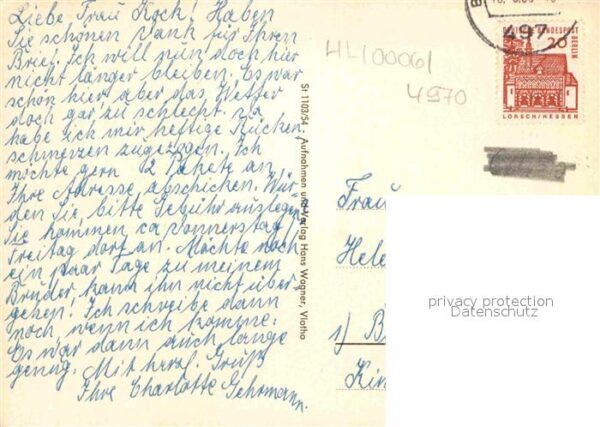 Liebe Frau Koch! Haben
Sie schönen Dank für Ihren
Brief. Ich will nun doch hier
nicht länger bleiben. Es war
schön hier, aber das Wetter
doch gar zu schlecht. Da
habe ich mir heftige Rücken-
schmerzen zugezogen. Ich
möchte gern 2 Pakete an
Ihre Adresse abschicken. Wür-
den Sie, bitte Gebühr auslegen,
Sie kommen ca Donnerstag/
Freitag dort an. Möchte noch
ein paar Tage zu meinem
Bruder, kann ihn nicht über-
gehen. Ich schreibe dann
noch, wenn ich komme.
Es war dann auch lange
genug. Mit herzl. Gruß
Ihre Charlotte Gehrmann.
St 1103/54 Aufnahmen und Verlag Hans Wagner, Vlotho
HL100061
4970
497
DEUTSCHE BUNDESPOST
BERLIN
20
LORSCH/HESSEN
Frau
Hele
1) B
Kin
privacy protection
Datenschutz